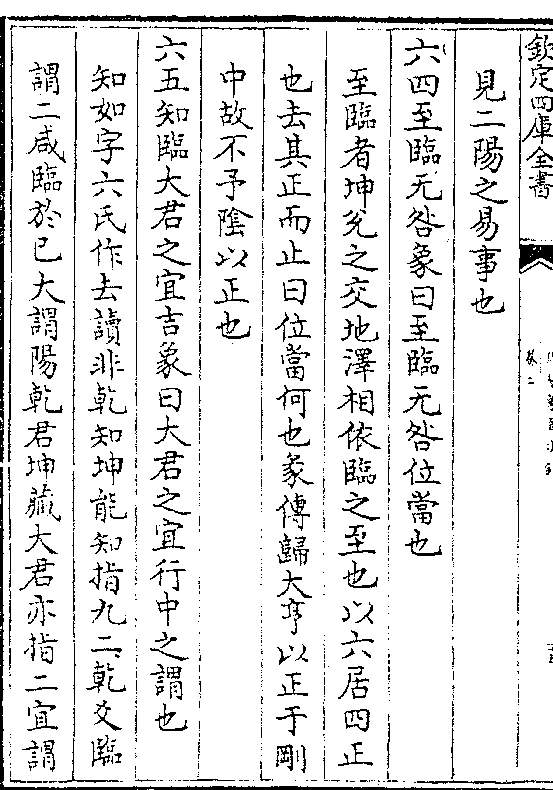 欽定四庫全書
卷二
見二陽之易事也
六四至臨无咎象曰至臨无咎位當也
至臨者坤兊之交地澤相依臨之至也以六居四正
也去其正而止曰位當何也彖傳歸大亨以正于剛
中故不予陰以正也
六五知臨大君之宜吉象曰大君之宜行中之謂也
知如字六氏作去讀非乾知坤能知指九二乾爻臨
謂二咸臨於已大謂陽乾君坤藏大君亦指二宜謂